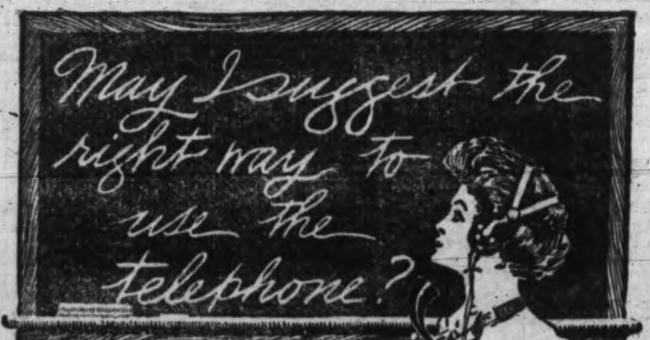 May I suggest the
right way to
use the
telephone?